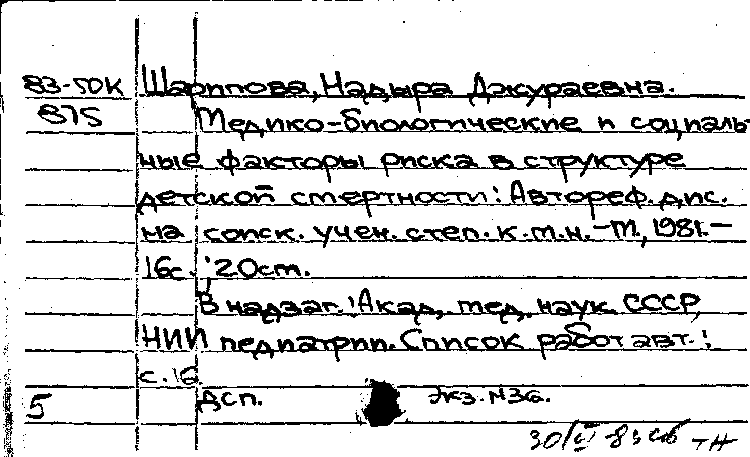 83-50К Шарипова, Надыра Джураевна.
875 Медико-биологические и социаль-
ные факторы риска в структуре
детской смертности: Автореф. дис.
на соиск. учен. степ. к.м.н. - М., 1981. -
16с.; 20см.
В надзаг.: Акад. мед. наук СССР,
НИИ педиатрии. Список работ авт.:
с. 16
5 ДСП. Экз. №36.
30/V-83